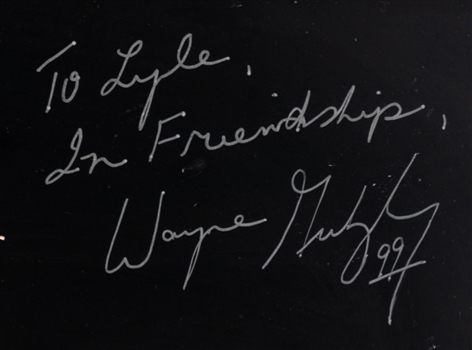 To Lyle,
In Friendship,
Wayne Gretzky
99